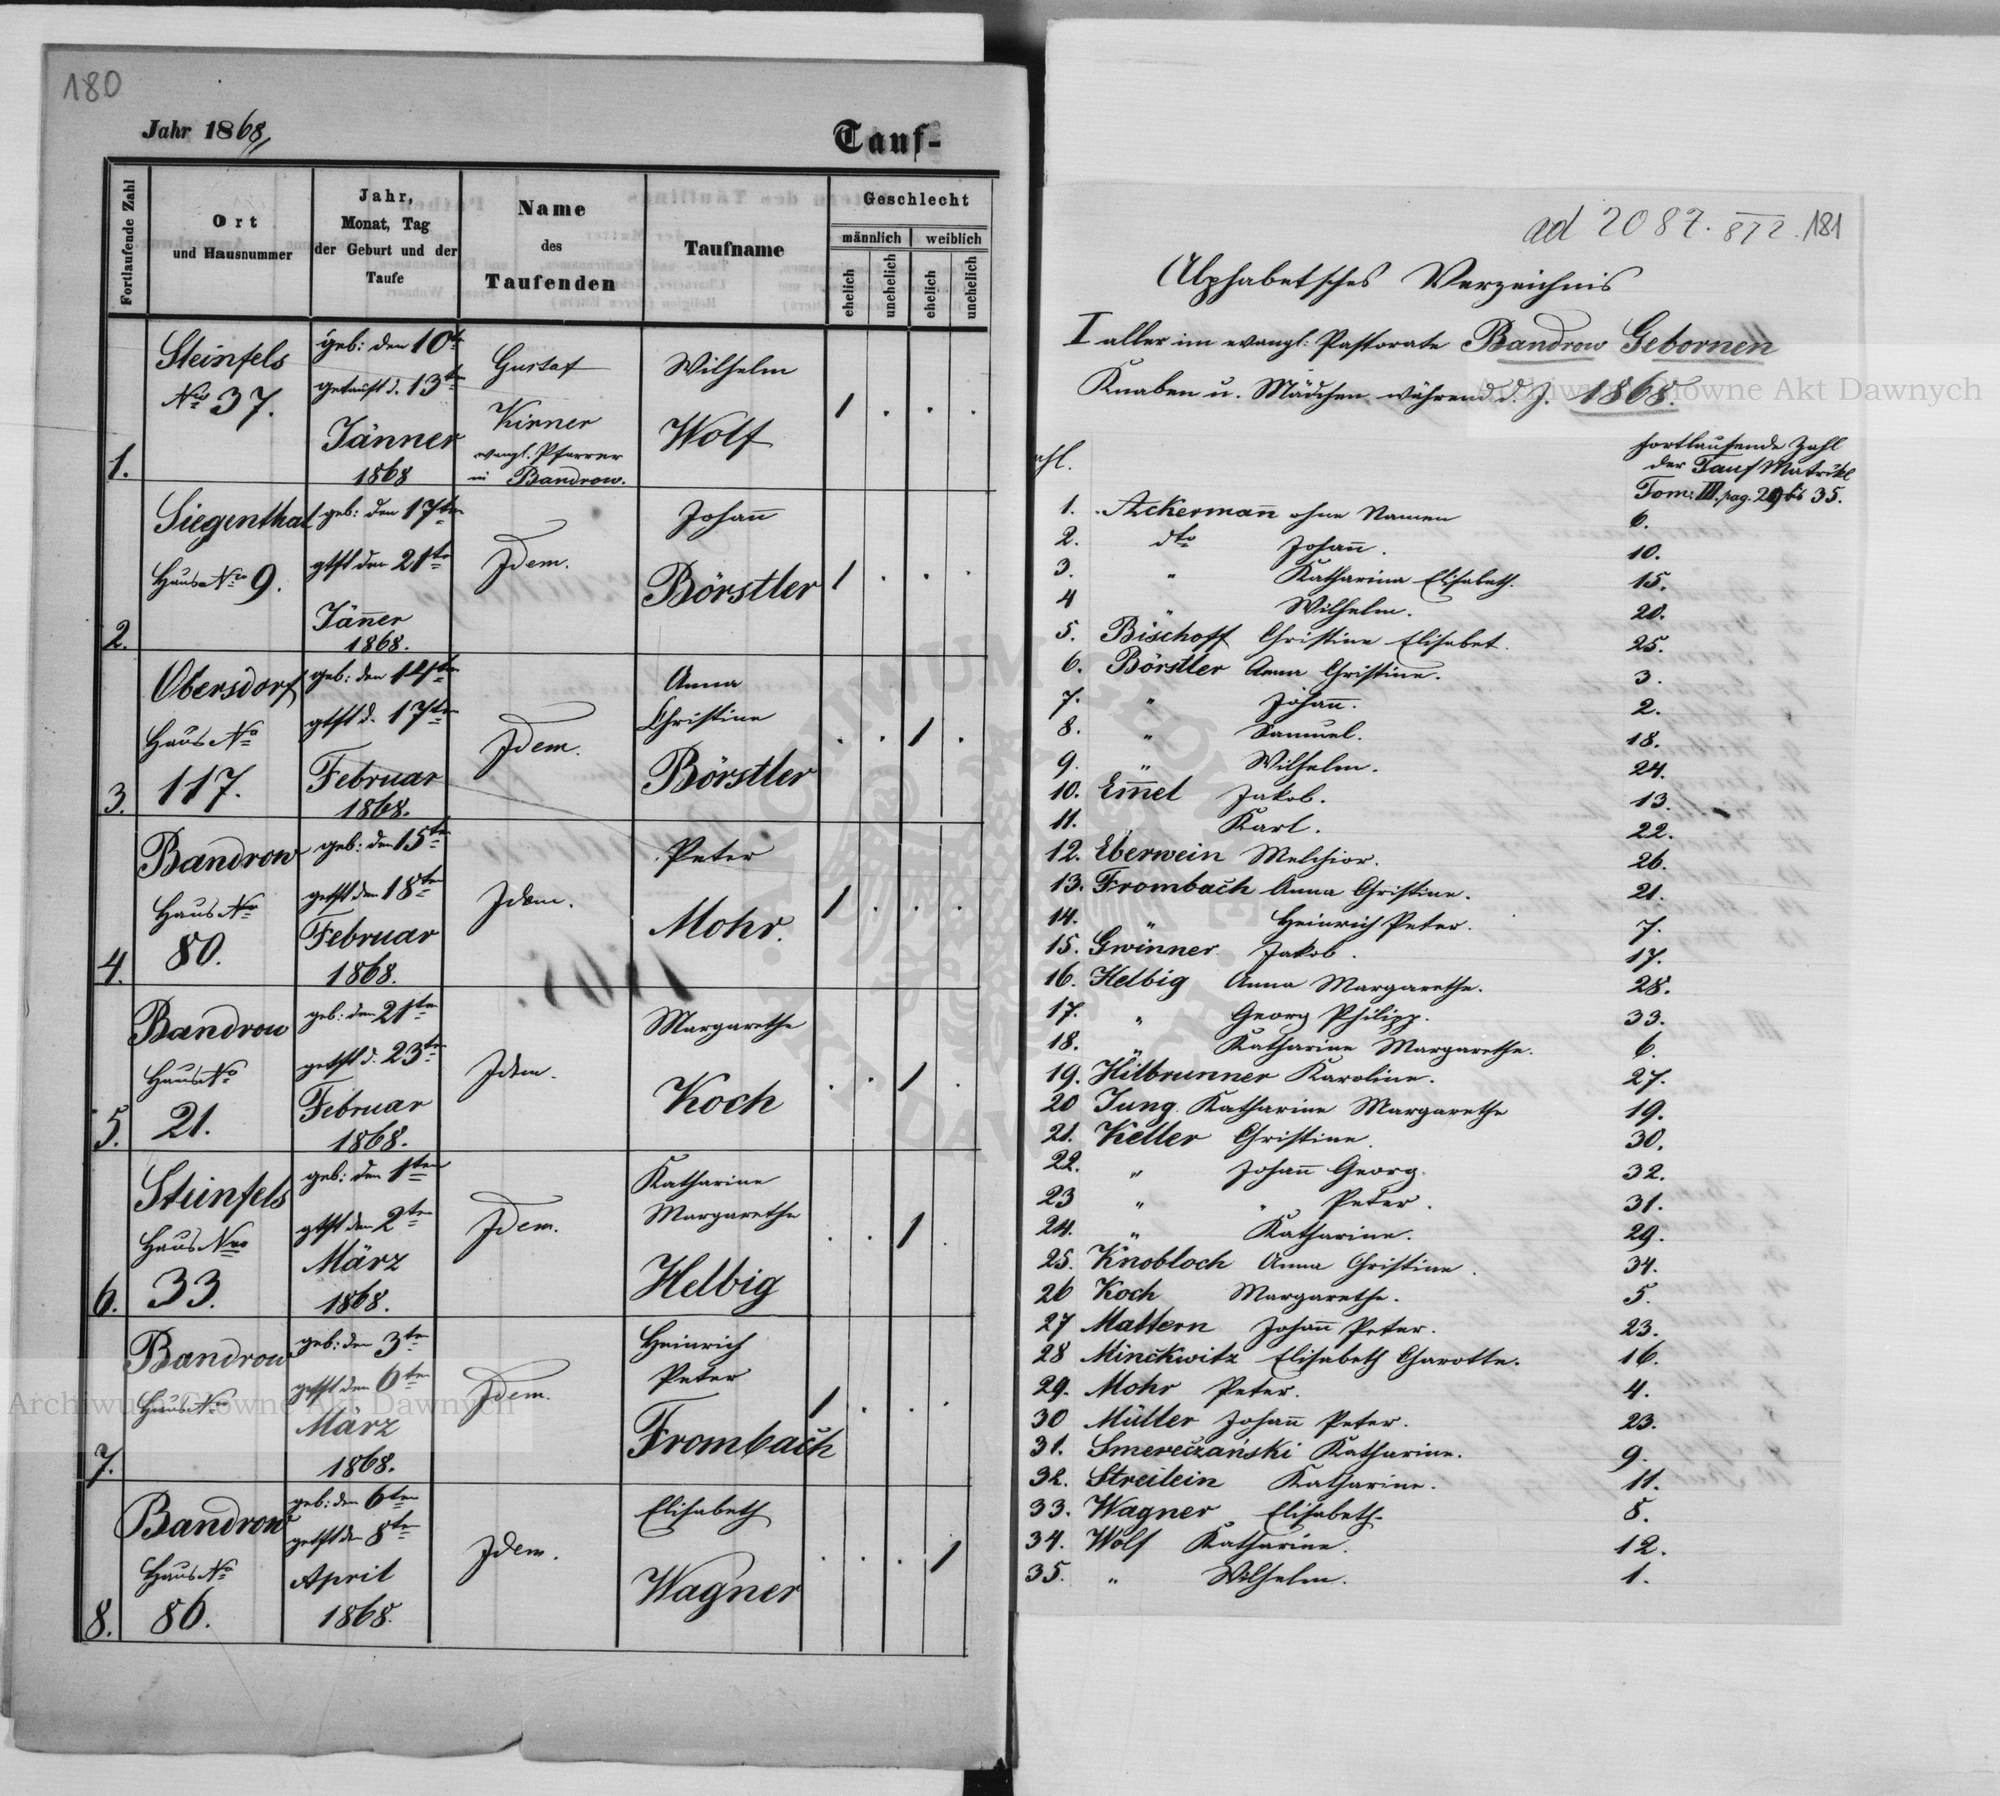 180
Jahr 1868,
Tauf-
Fortlaufende Zahl
Ort
und Hausnummer
Jahr,
Monat, Tag
der Geburt und der
Taufe
Name
des
Taufenden
Taufname
Geschlecht
männlich
weiblich
ehelich
unehelich
ehelich
unehelich
1.
Steinfels
Nro 37.
geb: den 10te
getauft d. 13ten
Jänner
1868
Gustaf
Kirner
evangl. Pfarrer
in Bandrow.
Wilhelm
Wolf
1 . . .
2.
Siegenthal
Haus Nro 9.
geb: den 17ten
gtft den 21te
Jäner
1868.
Idem.
Johann
Börstler
1 . . .
3.
Obersdorf
Haus No
117.
geb: den 14ten
gtft d. 17ten
Februar
1868.
Idem.
Anna
Christine
Börstler
. . 1 .
4.
Bandrow
Haus No
80.
geb: den 15te
getft den 18te
Februar
1868.
Idem.
Peter
Mohr.
1 . . .
5.
Bandrow
Haus No
21.
geb: den 21ten
getft d. 23te
Februar
1868.
Idem.
Margarethe
Koch
. . 1 .
6.
Steinfels
Haus Nro
33.
geb: den 1ten
gtft den 2ten
März
1868.
Idem.
Katharine
Margarethe
Helbig
. . 1 .
7.
Bandrow
Haus Nro
geb: den 3te
getft den 6ten
März
1868.
Idem.
Heinrich
Peter
Frombach
1 . . .
8.
Bandrow
Haus No
86.
geb: den 6ten
getft den 8te
April
1868.
Idem.
Elisabeth
Wagner
. . . 1
ad 2087. 872. 181
Alphabetsches Verzeichnis
I aller im evangl: Pastorate Bandrow Gebornen
Knaben u. Mädchen während d. J. 1868.
hl.
fortlaufende Zahl
der Tauf Matrikl
Tom: III. pag. 29 bis 35.
1. Ackermann ohne Namen 6.
2. dto Johann. 10.
3. " Katharina Elisabeth. 15.
4 " Wilhelm. 20.
5. Bischoff Christine Elisabet. 25.
6. Börstler Anna Christine. 3.
7. " Johann. 2.
8. " Samuel. 18.
9. " Wilhelm. 24.
10. Emel Jakob. 13.
11. Karl. 22.
12. Eberwein Melchior. 26.
13. Frombach Anna Christine. 21.
14. " Heinrich Peter. 7.
15. Gwinner Jakob. 17.
16. Helbig Anna Margarethe. 28.
17. " Georg Philipp. 33.
18. " Katharine Margarethe. 6.
19. Hilbrunner Karoline. 27.
20 Jung Katharine Margarethe 19.
21. Keller Christine. 30.
22. " Johann Georg. 32.
23 " " Peter. 31.
24. " Katharine. 29.
25. Knobloch Anna Christine. 34.
26 Koch Margarethe. 5.
27 Mattern Johann Peter. 23.
28 Minckwitz Elisabeth Charotte. 16.
29. Mohr Peter. 4.
30 Müller Johann Peter. 23.
31. Smereczański Katharine. 9.
32. Streilein Katharine. 11.
33. Wagner Elisabeth. 8.
34. Wolf Katharine. 12.
35. " Wilhelm. 1.
Archiwum Główne Akt Dawnych
Archiwum Główne Akt Dawnych
ARCHIWUM GŁÓWNE AKT DAWNYCH